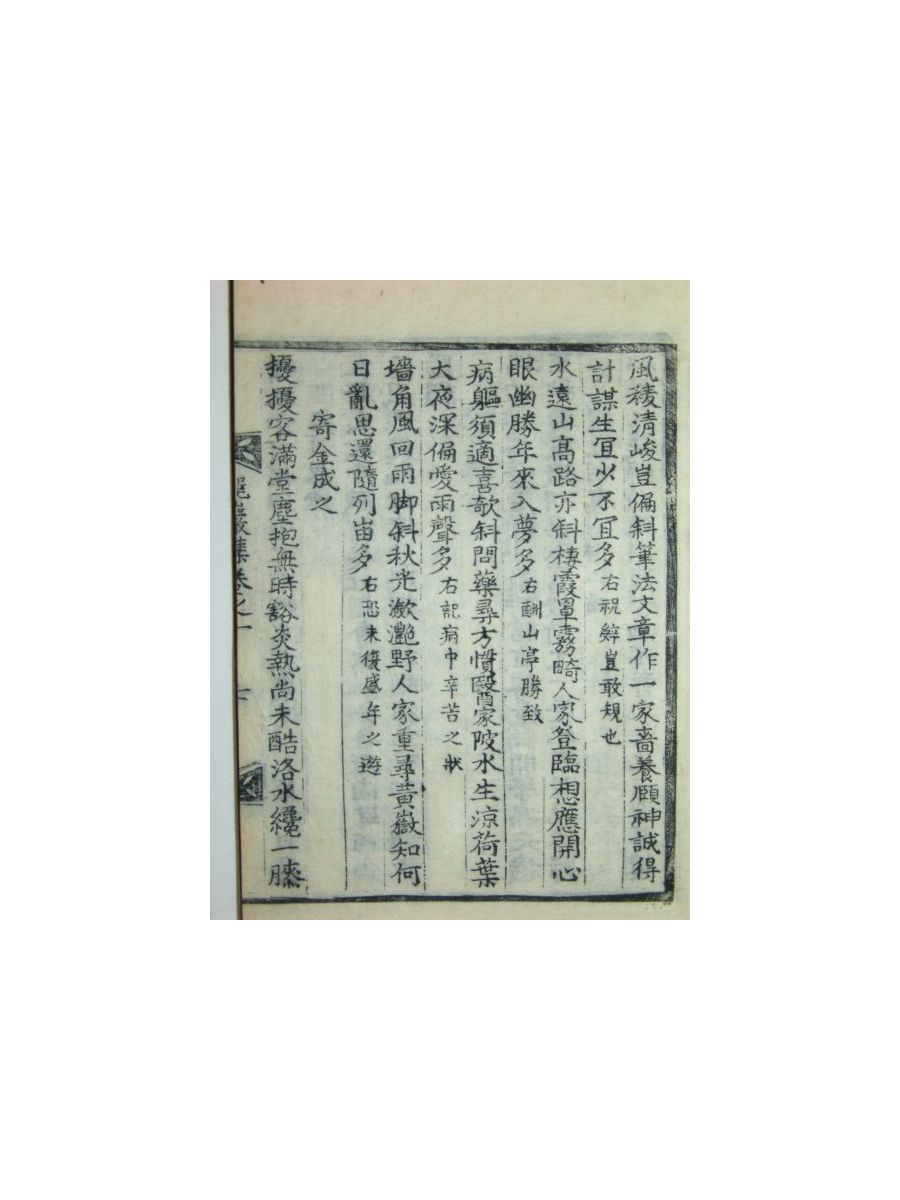 風稜清峻豈偏斜筆法文章作一家嗇養頤神誠得
計謀生宜少不宜多右祝辭豈敢規也
水遠山高路亦斜棲霞罩霧畸人家登臨想應開心
眼幽勝年來入夢多右酬山亭勝致
病軀須適喜欹斜問藥尋方慣醫家陂水生涼荷葉
大夜深偏愛雨聲多右記病中辛苦之狀
墻角風回雨脚斜秋光瀲灧野人家重尋黃嶽知何
日亂思還隨列岫多右恐未復盛年之遊
寄金成之
擾擾客滿堂塵抱無時豁炎熱尚未酷洛水纔一膝
巖集卷之一
七